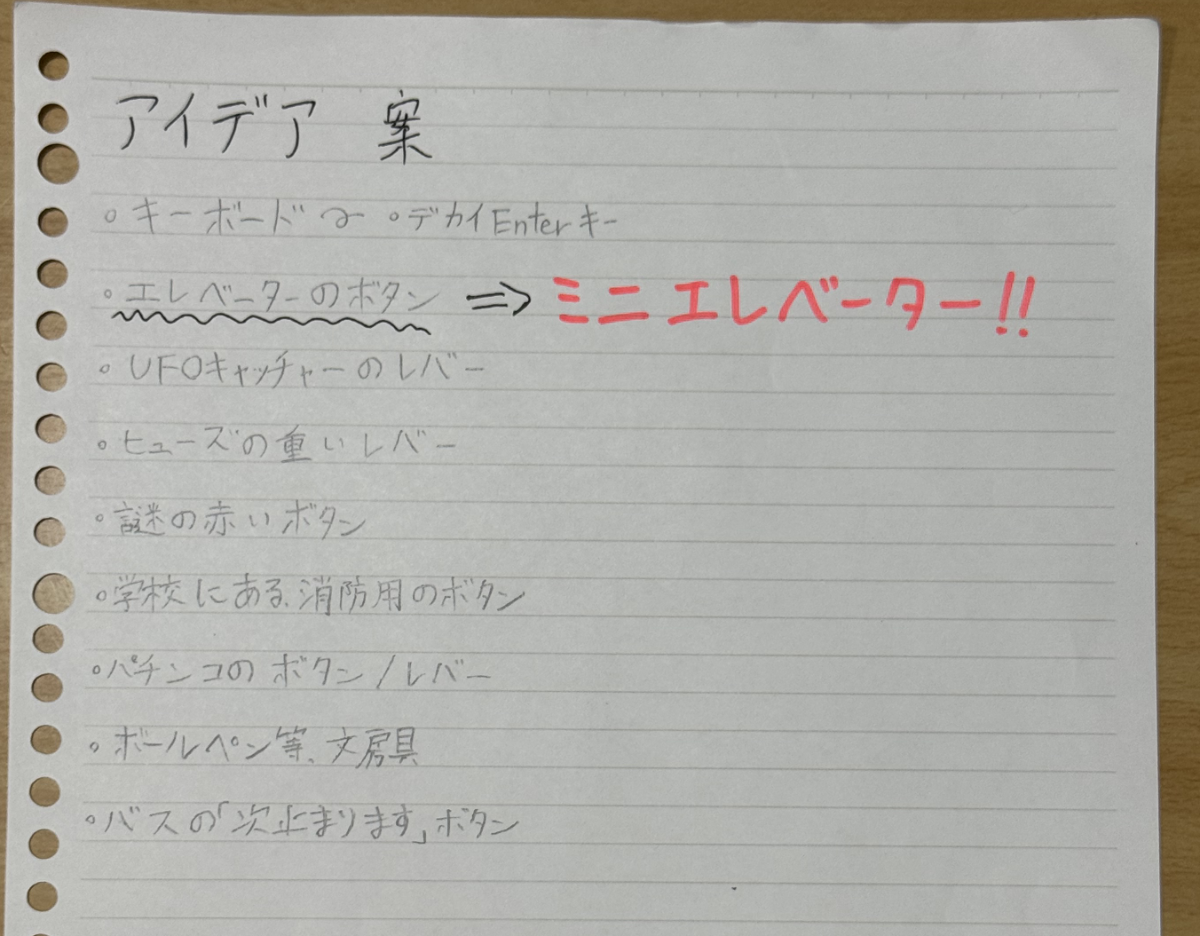 アイデア 案
。キーボード 〜 。デカイEnterキー
。エレベーターのボタン ⇒ ミニエレベーター!!
。UFOキャッチャーのレバー
。ヒューズの重いレバー
。謎の赤いボタン
。学校にある、消防用のボタン
。パチンコのボタン/レバー
。ボールペン等、文房具
。バスの「次止まります」ボタン